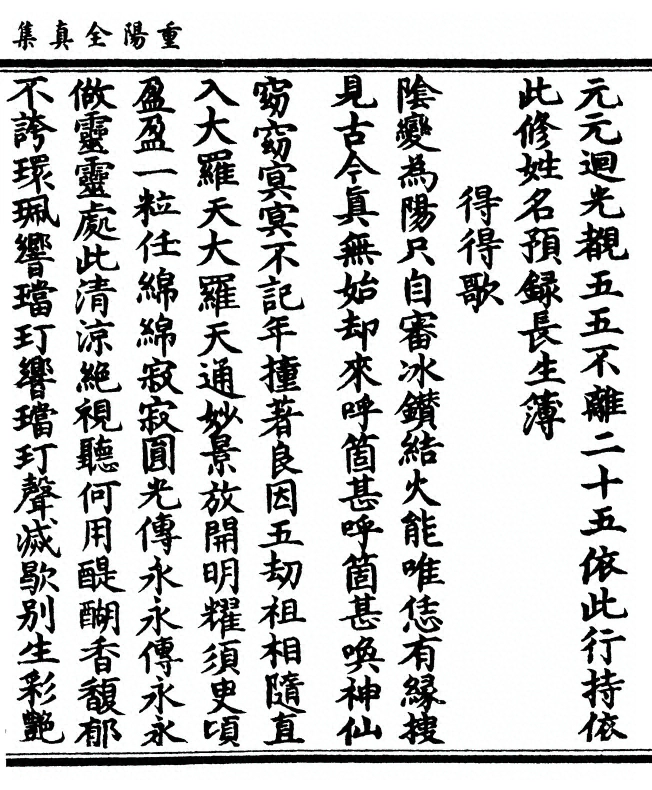 重陽全真集
元元迴光覩五五不離二十五依此行持依
此修姓名預録長生簿
得得歌
陰變為陽只自審冰鑚結火能唯恁有緣搜
見古今眞無始却來呼箇甚呼箇甚喚神仙
窈窈冥冥不記年撞著良因五劫祖相隨直
入大羅天大羅天通妙景放開明耀須臾頃
盈盈一粒任綿綿寂寂圓光傳永永傳永永
做靈靈處此清涼絶視聽何用醍醐香馥郁
不誇環珮響璫玎響璫玎聲滅歇别生彩艷